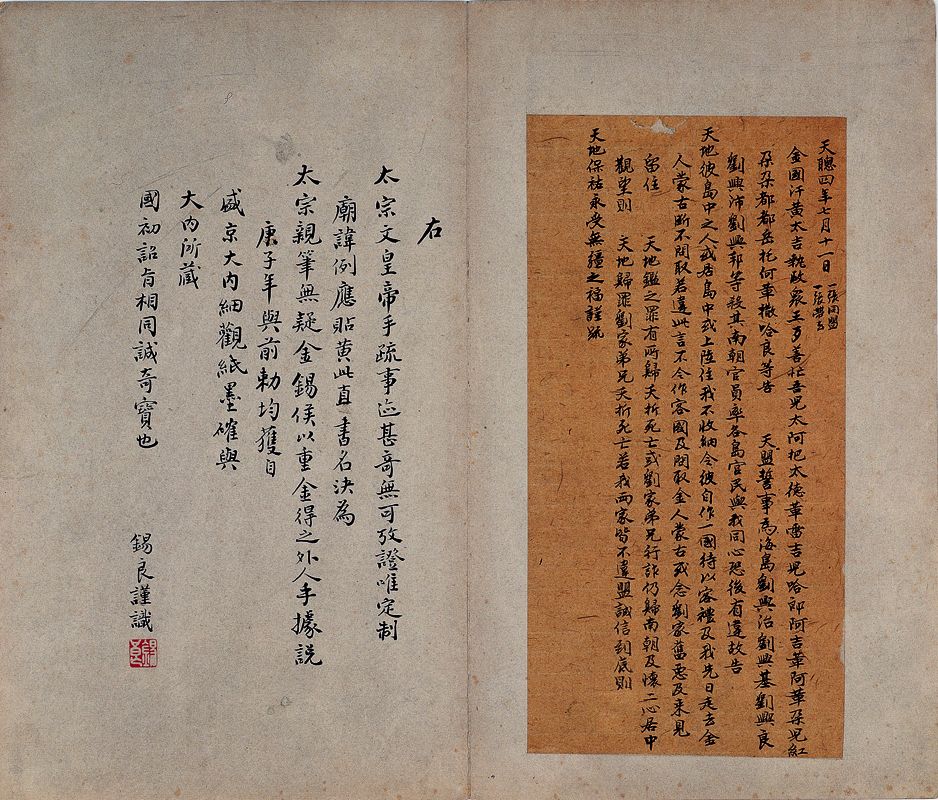 天聰四年七月十一日 一張同盟
一張營名
金國汗黃太吉執政衆王歹善忙吾兒太阿把太德革雷吉兒哈郎阿吉革阿革朶兒紅
朶朶都都岳托何革撒哈良等告 天盟誓事為海島劉興治劉興基劉興良
劉興沛劉興邦等移其南朝官員率各島官民與我同心恐後有違故告
天地彼島中之人或居島中或上陸住我不收納令彼自作一國待以客禮及我先日走去金
人蒙古断不問取若違此言不令作客國及問取金人蒙古或念劉家舊惡及来見
留住 天地鑑之罪有所歸夭折死亡或劉家弟兄行詐仍歸南朝及懷二心居中
觀望則 天地歸罪劉家弟兄夭折死亡若我兩家皆不違盟誠信到底則
天地保祐永受無疆之福謹疏
右
太宗文皇帝手疏事迹甚奇無可攷證唯定制
廟諱例應貼黃此直書名決為
太宗親筆無疑金錫侯以重金得之外人手據説
庚子年與前勅均獲自
盛京大内細觀紙墨確與
大内所藏
國初詔旨相同誠奇寶也
錫良謹識